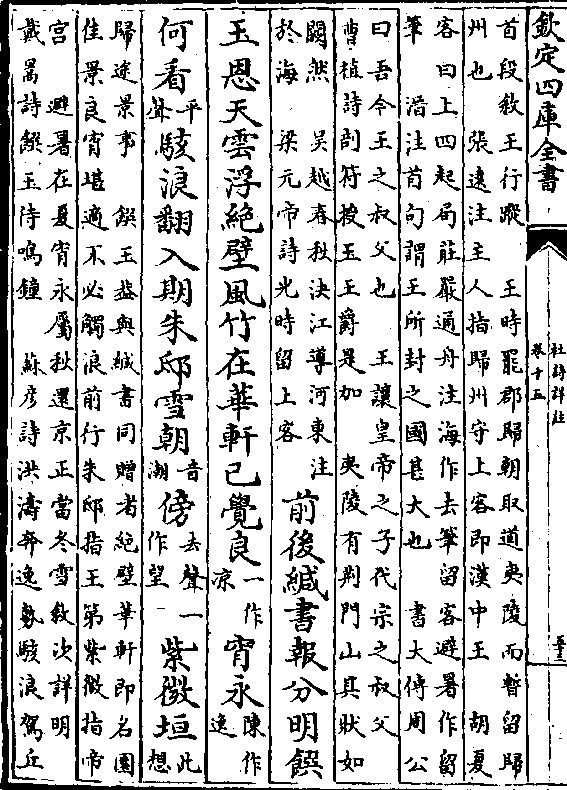 欽定四庫全書
杜詩詳註
卷十五
首段敘王行蹤　王時罷郡歸朝取道夷陵而暫留歸
州也　張遠注主人指歸州守上客即漢中王　胡夏
客曰上四起局莊嚴通舟注海作去筆留客避暑作留
筆　潛注首句謂王所封之國甚大也　書大傳周公
曰吾今王之叔父也　王讓皇帝之子代宗之叔父
曹植詩剖符授玉王爵是加　夷陵有荆門山其狀如
闕然　吳越春秋決江導河東注
於海　梁元帝詩光時留上客
前後緘書報分明饌
玉恩天雲浮絶壁風竹在華軒已覺良一作凉宵永陳作逸
何看平聲駭浪翻入期朱邸雪朝音潮傍去聲一作望紫微垣此想
歸途景事　饌玉益與緘書同贈者絶壁華軒即名園
佳景良宵堪適不必觸浪前行朱邸指王第紫微指帝
宮　避暑在夏宵永屬秋還京正當冬雪敘次詳明
戴暠詩饌玉待鳴鐘　蘇彥詩洪濤奔逸勢駭浪駕丘